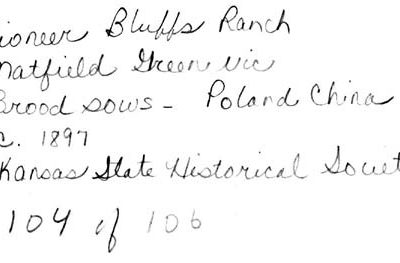 ioneer Bluffs Ranch
matfield Green vic
Brood sows - Poland China
c. 1897
Kansas State Historical Societ
104 of 106